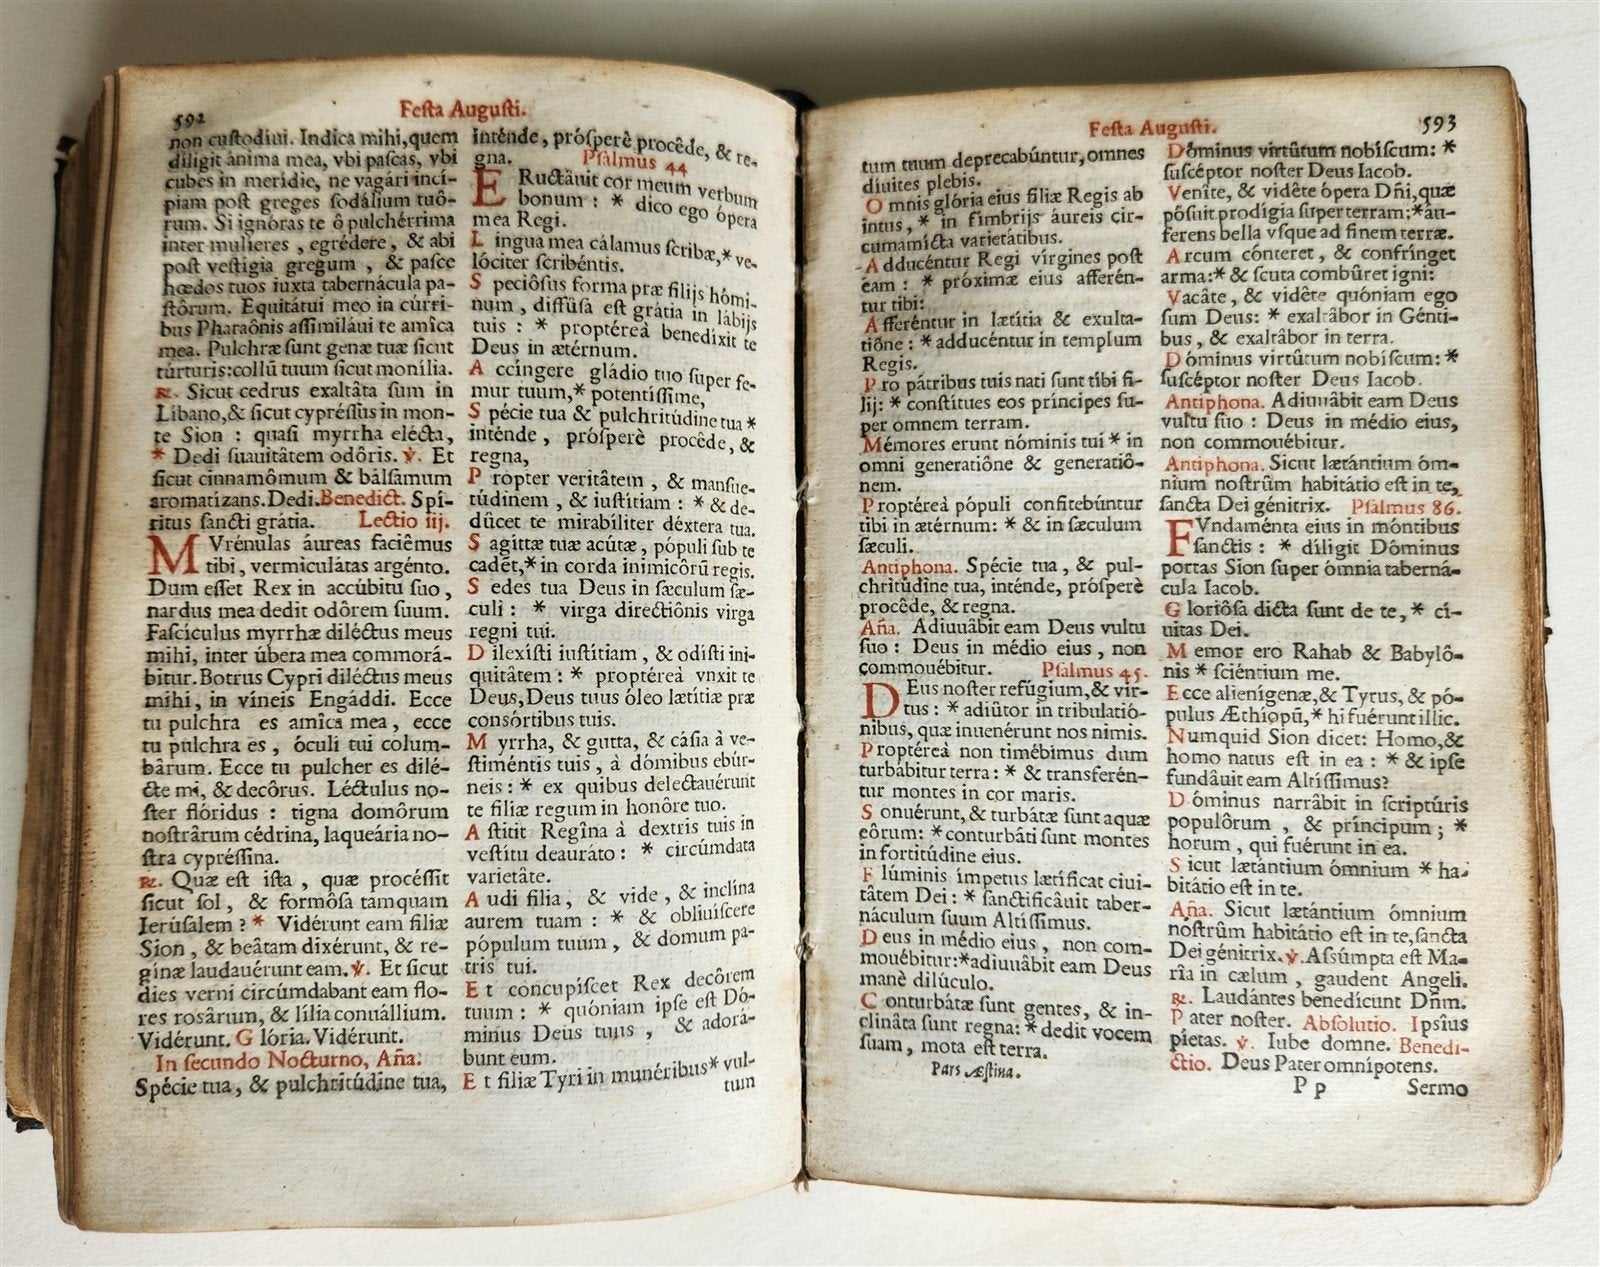 592
Festa Augusti.
non custodiui. Indica mihi, quem
diligit ánima mea, vbi pascas, vbi
cubes in merídie, ne vagári incí-
piam post greges sodálium tuô-
rum. Si ignôras te ô pulchérrima
inter mulíeres, egrédere, & abi
post vestígia gregum, & pasce
hœdos tuos iuxta tabernácula pa-
stôrum. Equitátui meo in cúrri-
bus Pharaônis assimiláui te amîca
mea. Pulchræ sunt genæ tuæ sicut
túrturis: collũ tuum sicut monília.
℟. Sicut cedrus exaltâta sum in
Líbano, & sicut cypréssus in mon-
te Sion : quasi myrrha elécta,
* Dedi suauitâtem odôris. ℣. Et
sicut cinnamômum & bálsamum
aromatízans. Dedi. Benedict. Spí-
ritus sancti grátia. Lectio iij.
MVrénulas áureas faciêmus
tibi, vermiculátas argénto.
Dum esset Rex in accúbitu suo,
nardus mea dedit odôrem suum.
Fascículus myrrhæ diléctus meus
mihi, inter úbera mea commorá-
bitur. Botrus Cypri diléctus meus
mihi, in víneis Engáddi. Ecce
tu pulchra es amîca mea, ecce
tu pulchra es, óculi tui colum-
bârum. Ecce tu pulcher es dilé-
cte mi, & decôrus. Léctulus no-
ster flóridus : tigna domôrum
nostrârum cédrina, laqueária no-
stra cypréssina.
℟. Quæ est ista, quæ procéssit
sicut sol, & formôsa tamquam
Ierúsalem ? * Vidérunt eam fíliæ
Sion, & beâtam dixérunt, & re-
gînæ laudauérunt eam. ℣. Et sicut
dies verni circúmdabant eam flo-
res rosârum, & lília conuállium.
Vidérunt. Glória. Vidérunt.
In secundo Nocturno, Aña:
Spécie tua, & pulchritúdine tua,
inténde, próspere procêde, & re-
gna. Psalmus 44
ERuctâuit cor meum verbum
bonum : * dico ego ópera
mea Regi.
Lingua mea cálamus scribæ, * ve-
lóciter scribéntis.
Speciôsus forma præ fílijs hómi-
num, diffûsa est grátia in lábijs
tuis : * proptéreà benedíxit te
Deus in ætérnum.
Accíngere gládio tuo super fe-
mur tuum, * potentíssime,
Spécie tua & pulchritúdine tua *
inténde, próspere procêde, &
regna,
Propter veritâtem, & mansue-
túdinem, & iustítiam : * & de-
dûcet te mirabíliter déxtera tua.
Sagíttæ tuæ acútæ, pópuli sub te
cadẽt, * in corda inimicôrũ regis.
Sedes tua Deus in sæculum sæ-
culi : * virga directiônis virga
regni tui.
Dilexísti iustítiam, & odísti ini-
quitâtem : * proptéreà vnxit te
Deus, Deus tuus óleo lætítiæ præ
consórtibus tuis.
Myrrha, & gutta, & cásia à ve-
stiméntis tuis, à dómibus ebúr-
neis : * ex quibus delectauérunt
te fíliæ regum in honôre tuo.
Astitit Regîna à dextris tuis in
vestítu deauráto : * circúmdata
varietâte.
Audi filia, & vide, & inclína
aurem tuam : * & obliuíscere
pópulum tuum, & domum pa-
tris tui.
Et concupíscet Rex decôrem
tuum : * quóniam ipse est Dó-
minus Deus tuus, & adorá-
bunt eum.
Et fíliæ Tyri in munéribus * vul-
tum
593
Festa Augusti.
tum tuum deprecabúntur, omnes
díuites plebis.
Omnis glória eius fíliæ Regis ab
intus, * in fímbrijs áureis cir-
cumamícta varietátibus.
Adducéntur Regi vírgines post
eam : * próximæ eius afferén-
tur tibi:
Afferéntur in lætítia & exulta-
tiône : * adducéntur in templum
Regis.
Pro pátribus tuis nati sunt tibi fí-
lij: * constítues eos príncipes su-
per omnem terram.
Mémores erunt nóminis tui * in
omni generatiône & generatiô-
nem.
Proptéreà pópuli confitebúntur
tibi in ætérnum: * & in sæculum
sæculi.
Antiphona. Spécie tua, & pul-
chritúdine tua, inténde, próspere
procêde, & regna.
Aña. Adiuuâbit eam Deus vultu
suo : Deus in médio eius, non
commouêbitur. Psalmus 45.
DEus noster refúgium, & vir-
tus : * adiûtor in tribulatió-
nibus, quæ inuenérunt nos nimis.
Proptéreà non timébimus dum
turbâbitur terra : * & transferén-
tur montes in cor maris.
Sonuérunt, & turbâtæ sunt aquæ
eôrum: * conturbâti sunt montes
in fortitúdine eius.
Flúminis ímpetus lætíficat ciui-
tâtem Dei : * sanctificâuit taber-
náculum suum Altíssimus.
Deus in médio eius, non com-
mouêbitur: * adiuuâbit eam Deus
manè dilúculo.
Conturbâtæ sunt gentes, & in-
clinâta sunt regna: * dedit vocem
suam, mota est terra.
Pars Æstiua.
Dóminus virtûtum nobíscum: *
suscéptor noster Deus Iacob.
Venîte, & vidête ópera Dñi, quæ
pôsuit prodígia super terram: * áu-
ferens bella vsque ad finem terræ.
Arcum cónteret, & confrínget
arma: * & scuta combûret igni:
Vacâte, & vidête quóniam ego
sum Deus: * exaltâbor in Génti-
bus, & exaltâbor in terra.
Dóminus virtûtum nobíscum: *
suscéptor noster Deus Iacob.
Antiphona. Adiuuâbit eam Deus
vultu suo : Deus in médio eius,
non commouêbitur.
Antiphona. Sicut lætántium óm-
nium nostrûm habitátio est in te,
sancta Dei génitrix. Psalmus 86.
FVndaménta eius in móntibus
sanctis : * díligit Dôminus
portas Sion super ómnia taberná-
cula Iacob.
Gloriôsa dicta sunt de te, * cí-
uitas Dei.
Memor ero Rahab & Babylô-
nis * sciéntium me.
Ecce alienígenæ, & Tyrus, & pó-
pulus Æthíopũ, * hi fuérunt illic.
Numquid Sion dicet: Homo, &
homo natus est in ea : * & ipse
fundâuit eam Altíssimus?
Dóminus narrâbit in scriptúris
populôrum, & príncipum ; *
horum, qui fuérunt in ea.
Sicut lætántium ómnium * ha-
bitátio est in te.
Aña. Sicut lætántium ómnium
nostrûm habitátio est in te, sancta
Dei génitrix. ℣. Assúmpta est Ma-
rîa in cælum, gaudent Angeli.
℟. Laudántes benedícunt Dñm.
Pater noster. Absolutio. Ipsîus
pietas. ℣. Iube domne. Benedi-
ctio. Deus Pater omnípotens.
P p Sermo